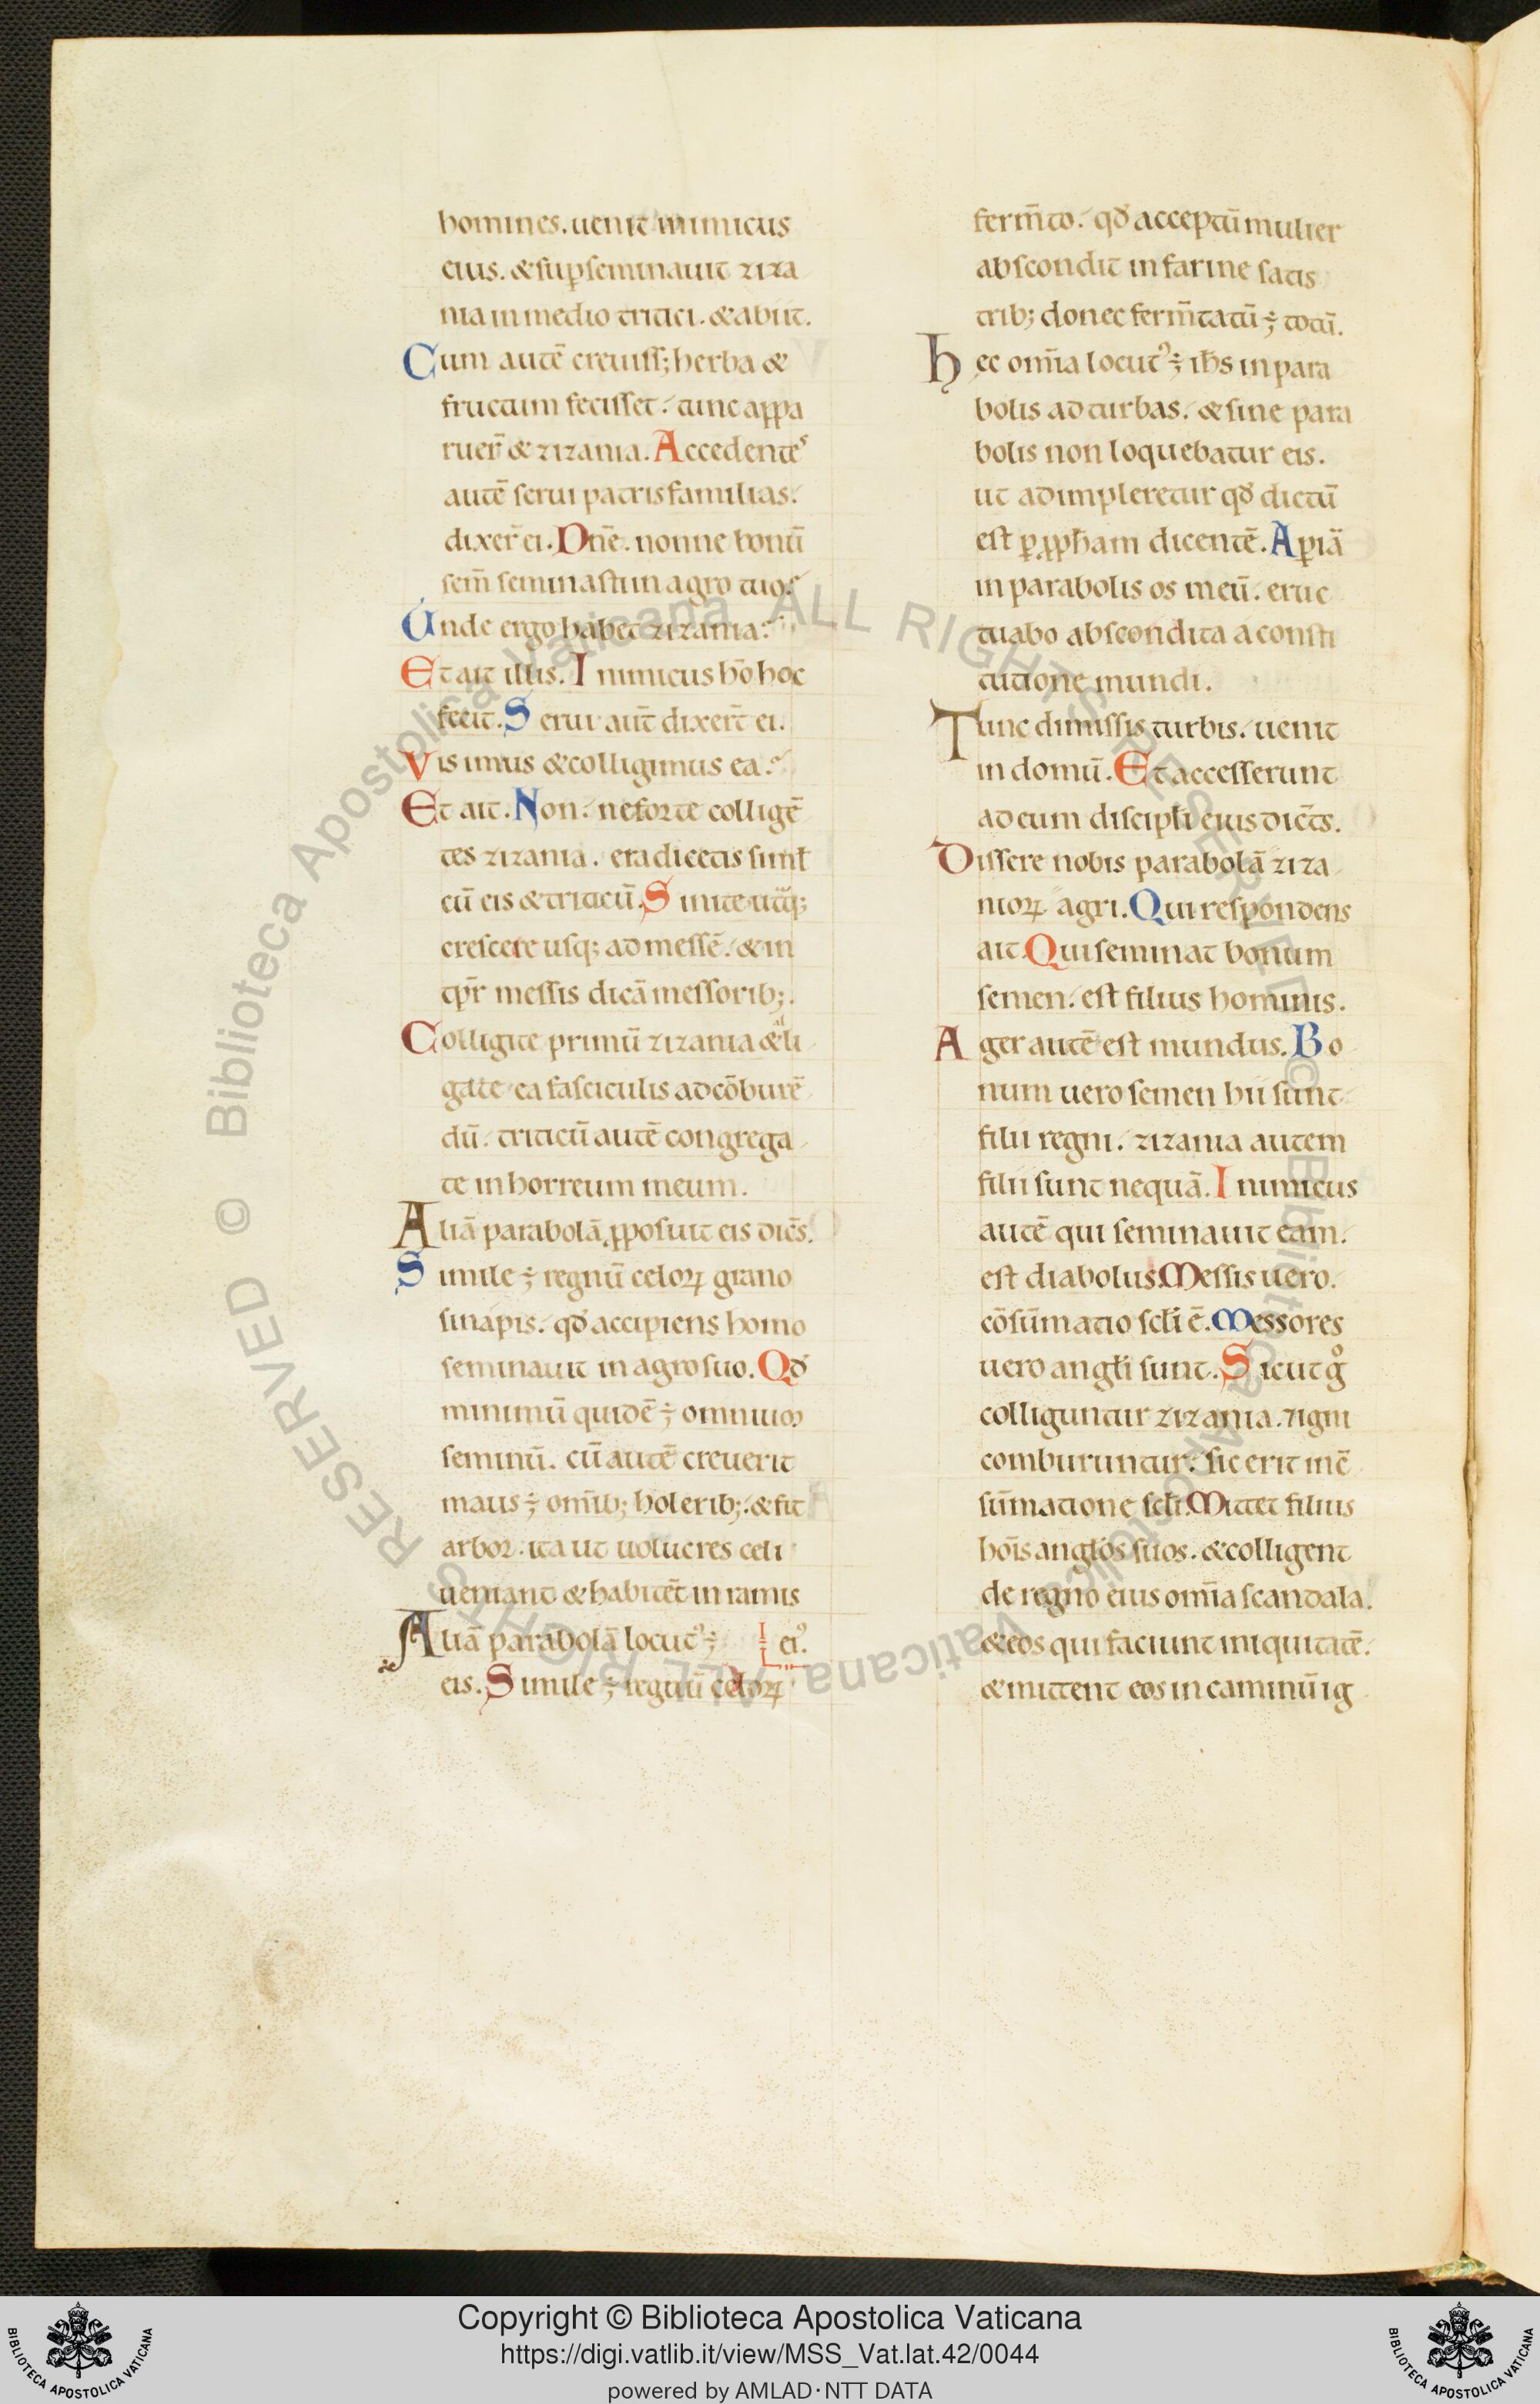 homines. uenit inimicus
eius. & sup̱seminauit ziza
nia in medio tritici. & abiit.
Cum autē creuiss; herba &
fructum fecisset. tunc appa
ruer̄ & zizania. Accedentes
autē serui patrisfamilias.
dixer̄ ei. Dn̄e. nonne bonū
sem̄ seminasti in agro tuo?
Unde ergo habet zizania?
Et ait illis. Inimicus hō hoc
fecit. Serui aut̄ dixer̄t ei.
Vis imus & colligimus ea?
Et ait. Non. ne forte colligē
tes zizania. eradicetis siml̄
cū eis & triticū. Sinite utq;
crescere usq; ad messē. & in
tp̄r messis dicā messorib;.
Colligite primū zizania & alli
gate ea fasciculis ad cōburē
dū. triticū autē congrega
te in horreum meum.
Aliā parabolā ꝓposuit eis dic̄s.
Simile ÷ regnū celoꝝ grano
sinapis. qđ accipiens homo
seminauit in agro suo. Qđ
minimū quidē ÷ omnium
seminū. cū autē creuerit
maius ÷ om̄ib; holerib;. & fit
arbor. ita ut uolucres celi
ueniant & habitēt in ramis
Aliā parabolā locut᾿ ÷ ei᾿.
eis. Simile ÷ regnū celoꝝ
ferm̄to. qđ acceptū mulier
abscondit in farine satis
trib; donec ferm̄tatū ÷ totū.
Hec om̄ia locut᾿ ÷ ih̄s in para
bolis ad turbas. & sine para
bolis non loquebatur eis.
ut adimpleretur qđ dictū
est ꝑ ꝓph̄am dicentē. Aꝑiā
in parabolis os meū. eruc
tuabo abscondita a consti
tutione mundi.
Tunc dimissis turbis. uenit
in domū. Et accesserunt
ad eum discipl̄i eius dic̄ts.
Dissere nobis parabolā ziza
nioꝝ agri. Qui respondens
ait. Qui seminat bonum
semen. est filius hominis.
Ager autē est mundus. Bo
num uero semen hii sunt
filii regni. zizania autem
filii sunt nequā. Inimicus
autē qui seminauit eam.
est diabolus. Messis uero.
cōsūmatio scl̄i ē. Messores
uero angl̄i sunt. Sicut gͦ
colliguntur zizania. ⁊ igni
comburuntur. sic erit in cō
sūmatione scl̄i. Mittet filius
hoīs anglōs suos. & colligent
de regno eius om̄ia scandala.
& eos qui faciunt iniquitatē.
& mittent eos in caminū ig
© Biblioteca Apostolica Vaticana ALL RIGHTS RESERVED
© Biblioteca Apostolica Vaticana ALL RIGHTS RESERVED
Copyright © Biblioteca Apostolica Vaticana
https://digi.vatlib.it/view/MSS_Vat.lat.42/0044
powered by AMLAD·NTT DATA
BIBLIOTECA APOSTOLICA VATICANA
BIBLIOTECA APOSTOLICA VATICANA